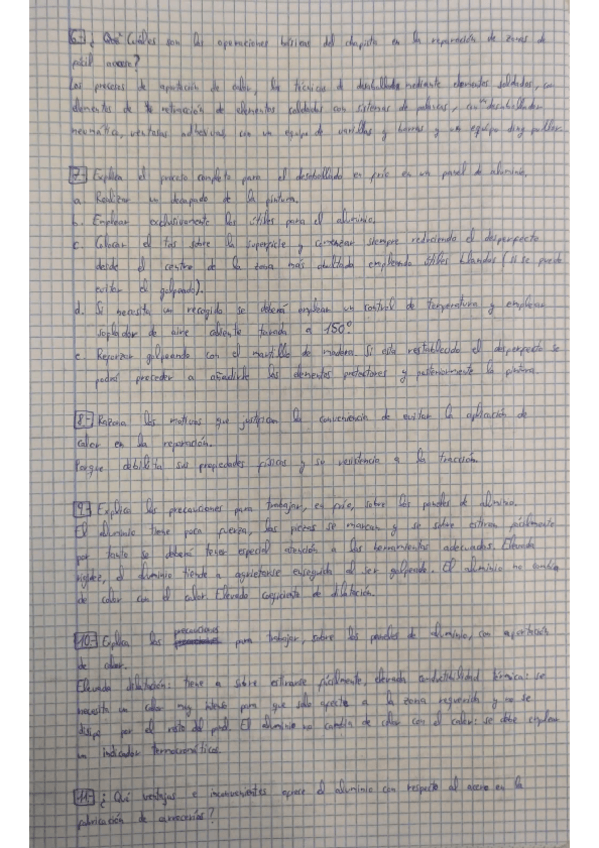 6- ¿ Qué Cuáles son las operaciones básicas del chapista en la reparación de zonas de
fácil acceso?
Los procesos de aportación de calor, las técnicas de desabollado mediante elementos soldados, con
elementos de retención de elementos soldados con sistemas de palancas, con desabollador
neumático, ventosas adhesivas con un equipo de varillas y barras y un equipo ding puller.
7- Explica el proceso completo para el desabollado en frío en un panel de aluminio.
a Realizar un decapado de la pintura.
b. Emplear exclusivamente los útiles para el aluminio.
c. Colocar el tas sobre la superficie y comenzar siempre reduciendo el desperfecto
desde el centro de la zona más dañada empleando útiles blandos (si se puede
evitar el golpeado).
d. Si necesita un recogido se deberá emplear un control de temperatura y emplear
soplador de aire caliente tarado a 150º
e Repasar golpeando con el martillo de madera. Si está restablecido el desperfecto se
podrá proceder a añadirle los elementos protectores y posteriormente la pintura.
8- Razona los motivos que justifican la conveniencia de evitar la aplicación de
calor en la reparación.
Porque debilita sus propiedades físicas y su resistencia a la tracción.
9- Explica las precauciones para trabajar, en frío, sobre los paneles de aluminio.
El aluminio tiene poca fuerza, las piezas se marcan y se sobre estiran fácilmente
por tanto se deberá tener especial atención a las herramientas adecuadas. Elevada
rigidez, el aluminio tiende a agrietarse enseguida al ser golpeado. El aluminio no cambia
de color con el calor Elevado coeficiente de dilatación.
10- Explica las precauciones para trabajar, sobre los paneles de aluminio, con aportación
de calor.
Elevada dilatación: tiene a sobre estirarse fácilmente, elevada conductividad térmica: se
necesita un calor muy intenso para que solo afecte a la zona requerida y no se
disipe por el resto del panel. El aluminio no cambia de color con el calor: se debe emplear
un indicador termocromáticos.
11- ¿ Qué ventajas e inconvenientes ofrece el aluminio con respecto al acero en la
fabricación de carrocerías?